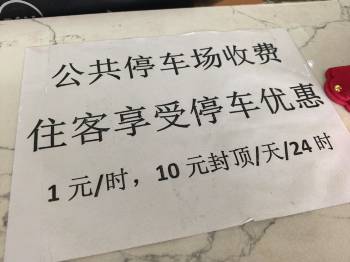 公共停车场收费
住客享受停车优惠
1元/时，10元封顶/天/24时